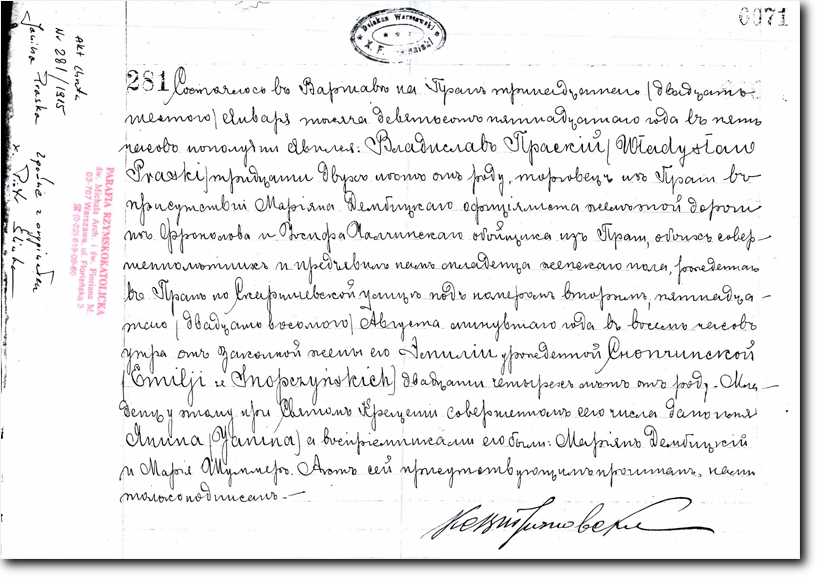 6071
Dziekan Warszawski
X. F.
Akt chrztu
Nr 281/1915
Janina Praska
Zgodne z oryginałem
x. Piotr
PARAFIA RZYMSKOKATOLICKA
św. Michała Arch. i św. Floriana M.
03-707 Warszawa, ul. Floriańska 3
☎ (0-22) 619-09-60
281 Состоялось въ Варшавѣ на Прагѣ тринадцатаго / двадцать
шестого / Января тысяча девятьсотъ пятнадцатаго года въ пять
часовъ пополудни. Явился: Владиславъ Праскій / Władysław
Praski / тридцати двухъ лѣтъ отъ роду, торговецъ изъ Праги въ
присутствіи Маріяна Дембицкаго оффиціялиста желѣзной дороги
изъ и обойщика изъ Праги, обоихъ совер-
шеннолѣтнихъ и предъявилъ намъ младенца женскаго пола, рожденнаго
въ Прагѣ по Скарышевской улицѣ подъ номеромъ вторымъ, пятнадца-
таго / двадцать восьмого / Августа минувшаго года въ восемь часовъ
утра отъ законной жены его Эмиліи урожденной Снопчинской
/ Emilji z Snopczyńskich / двадцати четырехъ лѣтъ отъ роду. - Мла-
денцу этому при Святомъ Крещеніи совершенномъ сего числа дано имя
Янина / Janina / а воспріемниками его были: Маріянъ Дембицкій
и Марія Шуммеръ. Актъ сей присутствующимъ прочитанъ, нами
только подписанъ. —